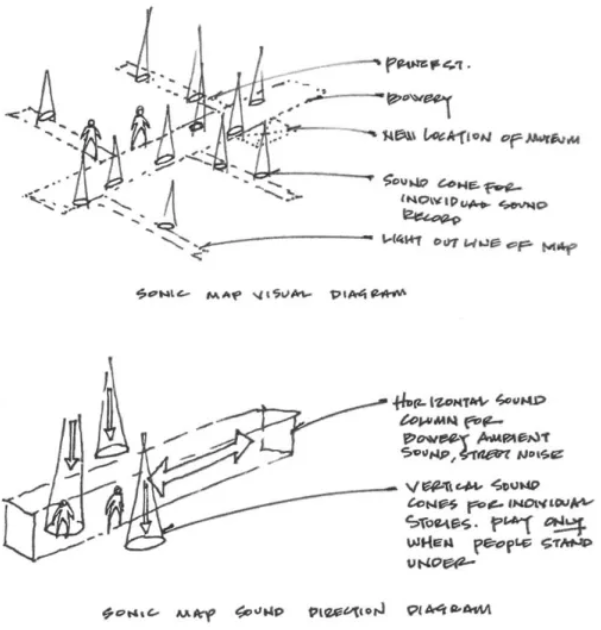 PRINCE ST.
BOWERY
NEW LOCATION OF MUSEUM
SOUND CONE FOR
INDIVIDUAL SOUND
RECORD
LIGHT OUTLINE OF MAP
SONIC MAP VISUAL DIAGRAM
HORIZONTAL SOUND
COLUMN FOR
BOWERY AMBIENT
SOUND, STREET NOISE
VERTICAL SOUND
CONES FOR INDIVIDUAL
STORIES. PLAY ONLY
WHEN PEOPLE STAND
UNDER
SONIC MAP SOUND DIRECTION DIAGRAM